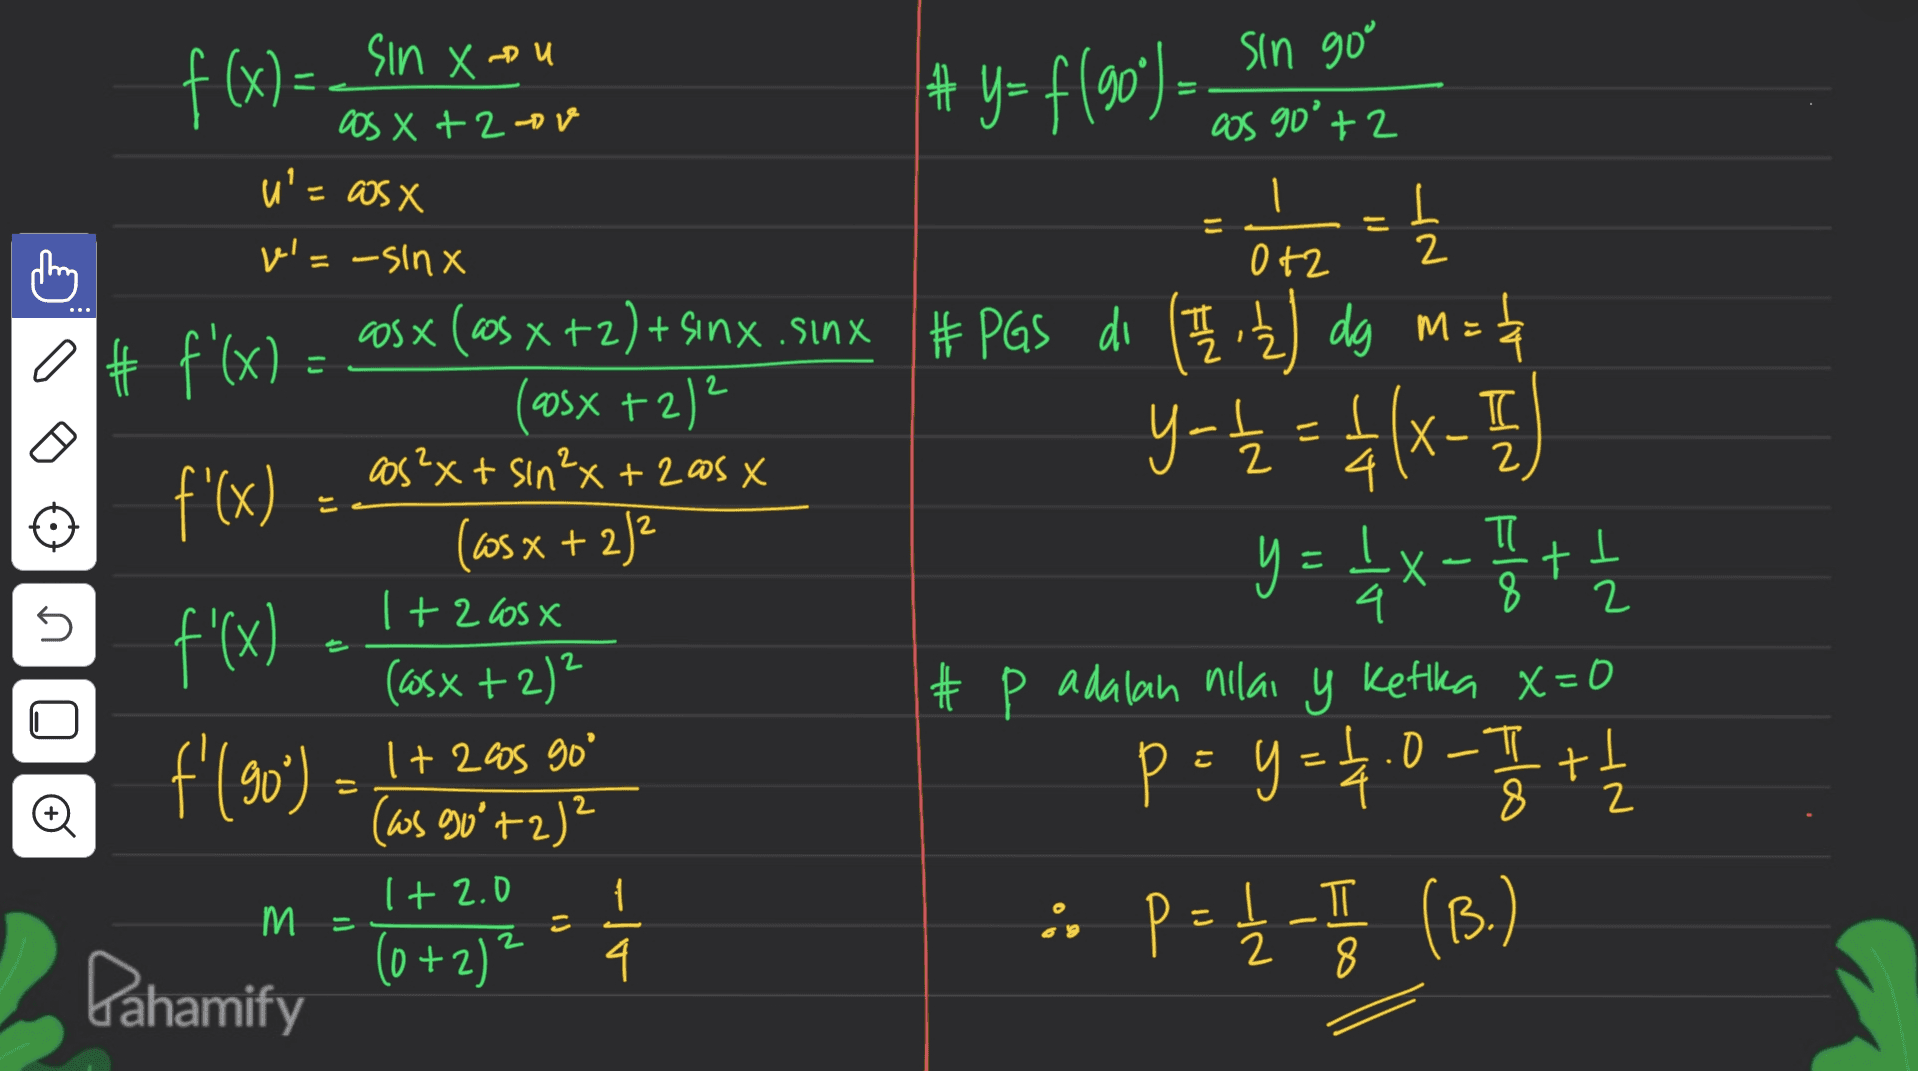 f(x) = sin x → u / cos x + 2 → v
u' = cos x
v' = -sin x
# f'(x) = cos x (cos x + 2) + sin x . sin x / (cos x + 2)²
f'(x) = cos²x + sin²x + 2 cos x / (cos x + 2)²
f'(x) = 1 + 2 cos x / (cos x + 2)²
f'(90°) = 1 + 2 cos 90° / (cos 90° + 2)²
m = 1 + 2.0 / (0 + 2)² = 1/4
Pahamify
# y = f(90°) = sin 90° / cos 90° + 2
= 1 / 0+2 = 1/2
# PGS di (π/2, 1/2) dg m = 1/4
y - 1/2 = 1/4 (x - π/2)
y = 1/4 x - π/8 + 1/2
# p adalah nilai y ketika x = 0
p = y = 1/4 . 0 - π/8 + 1/2
∴ p = 1/2 - π/8 (B.)